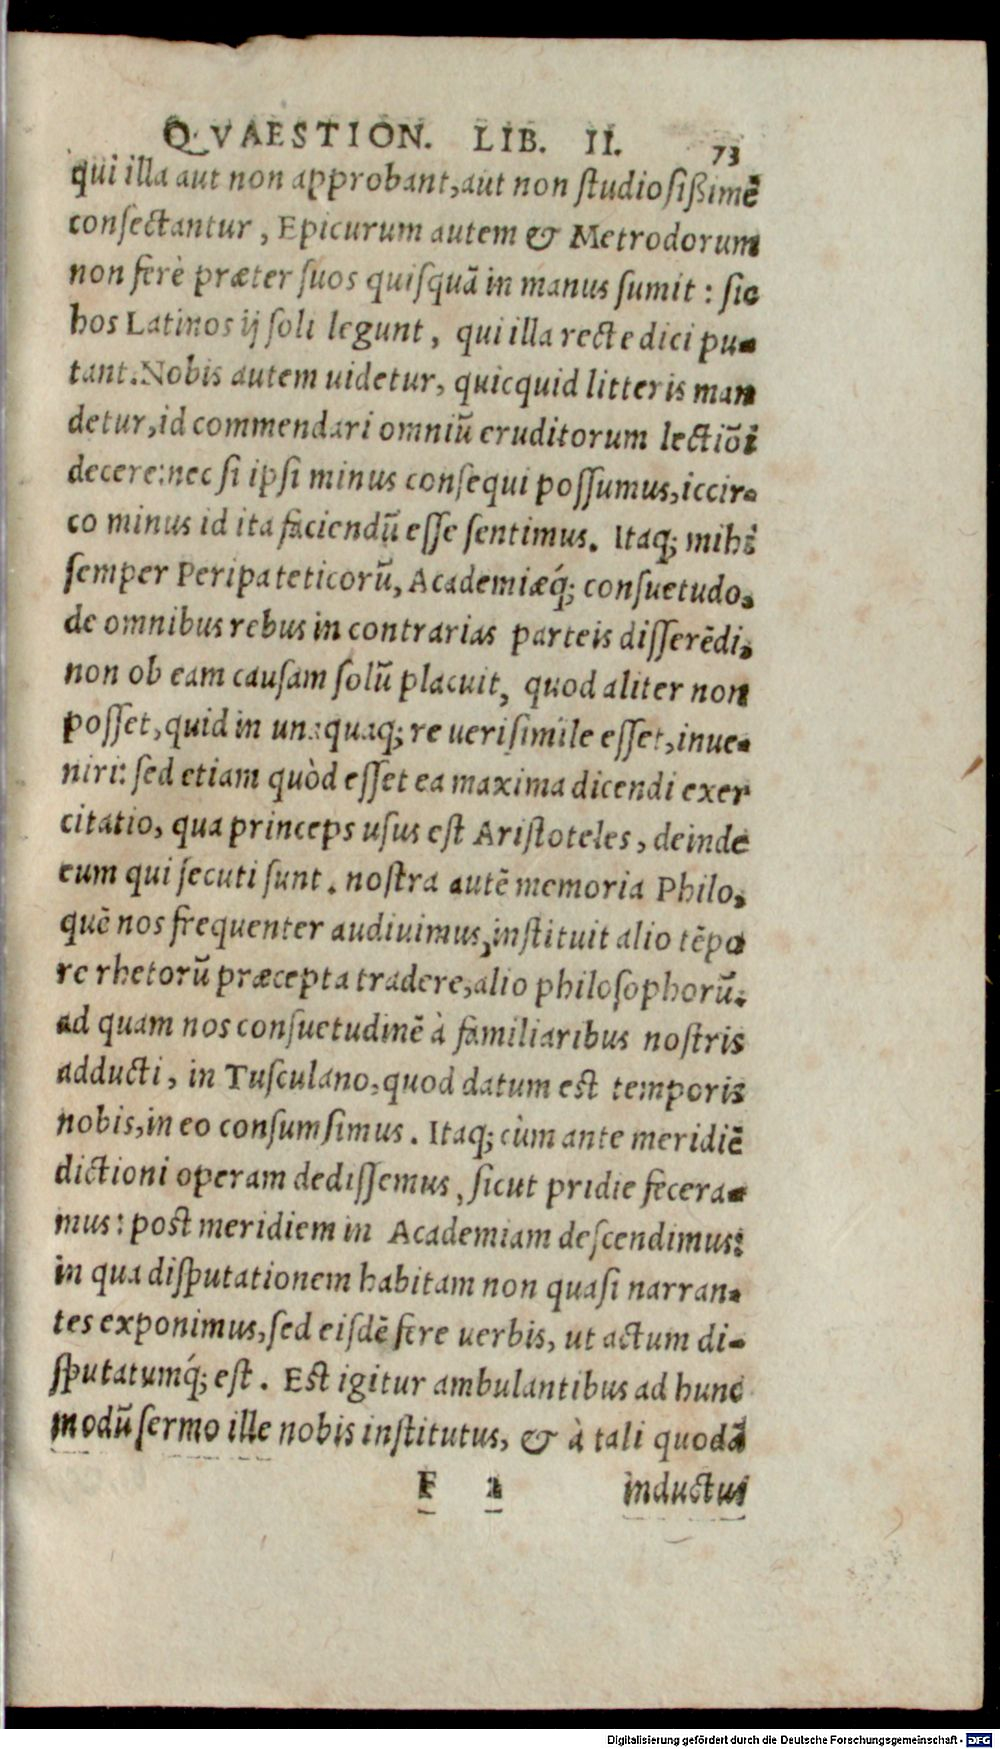 QVAESTION. LIB. II. 73
qui illa aut non approbant, aut non studiosißimē
consectantur, Epicurum autem & Metrodorum
non ferè præter suos quisquā in manus sumit: sic
hos Latinos ij soli legunt, qui illa recte dici pu-
tant. Nobis autem uidetur, quicquid litteris man
detur, id commendari omniū eruditorum lectiōi
decere: nec si ipsi minus consequi possumus, iccir-
co minus id ita faciendū esse sentimus. Itaq; mihi
semper Peripateticorū, Academiæq́; consuetudo,
de omnibus rebus in contrarias parteis disserēdi,
non ob eam causam solū placuit, quod aliter non
posset, quid in unaquaq; re uerisimile esset, inue-
niri: sed etiam quòd esset ea maxima dicendi exer
citatio, qua princeps usus est Aristoteles, deinde
eum qui secuti sunt. nostra autē memoria Philo,
quē nos frequenter audiuimus, instituit alio tēpo
re rhetorū præcepta tradere, alio philosophorū:
ad quam nos consuetudinē à familiaribus nostris
adducti, in Tusculano, quod datum est temporis
nobis, in eo consumsimus. Itaq; cùm ante meridiē
dictioni operam dedissemus, sicut pridie fecera-
mus: post meridiem in Academiam descendimus:
in qua disputationem habitam non quasi narran-
tes exponimus, sed eisdē fere uerbis, ut actum di-
sputatumq́; est. Est igitur ambulantibus ad hunc
modū sermo ille nobis institutus, & à tali quodā
F 2 inductus
Digitalisierung gefördert durch die Deutsche Forschungsgemeinschaft - DFG